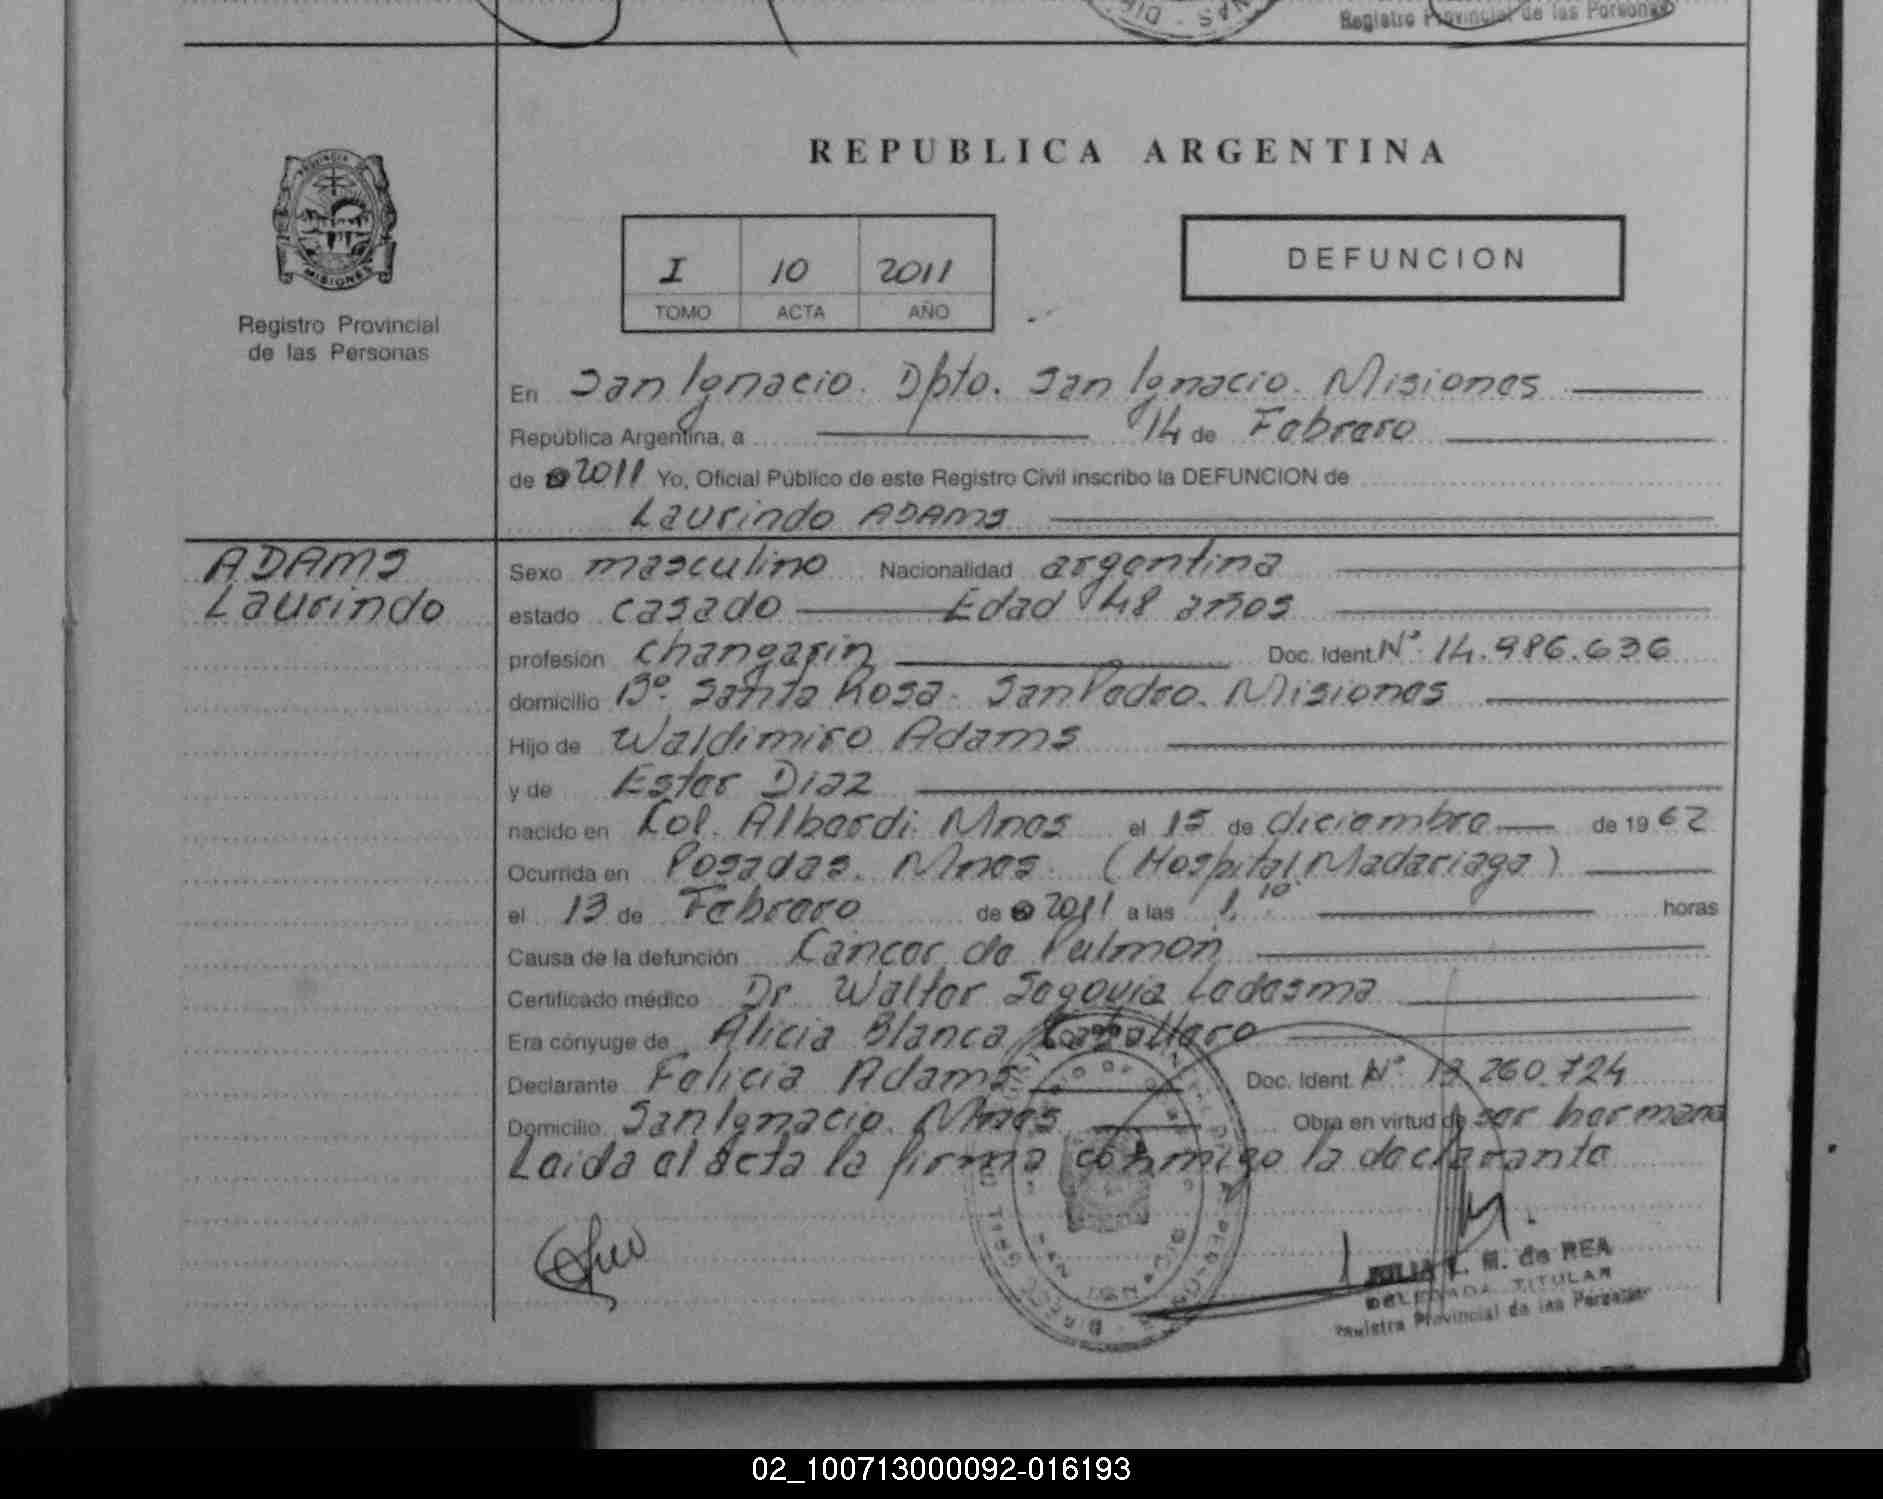 Registro Provincial de las Personas
REPUBLICA ARGENTINA
PROVINCIA
MISIONES
I 10 2011
TOMO ACTA AÑO
DEFUNCION
Registro Provincial
de las Personas
En San Ignacio. Dpto. San Ignacio. Misiones
República Argentina, a 14 de Febrero
de 2011 Yo, Oficial Público de este Registro Civil inscribo la DEFUNCION de
Laurindo ADAMS
ADAMS
Laurindo
Sexo masculino Nacionalidad argentina
estado casado Edad 48 años
profesión changarin Doc. Ident. Nº 14.986.636
domicilio Bº Santa Rosa. San Pedro. Misiones
Hijo de Waldimiro Adams
y de Ester Diaz
nacido en Col. Alberdi. Mnes el 15 de diciembre de 1962
Ocurrida en Posadas. Mnes. (Hospital Madariaga)
el 13 de Febrero de 2011 a las 1,10 horas
Causa de la defunción Cáncer de Pulmon
Certificado médico Dr. Walter Segovia Ledesma
Era cónyuge de Alicia Blanca Caballero
Declarante Felicia Adams Doc. Ident. Nº 260.724
Domicilio San Ignacio. Mnes Obra en virtud de ser hermana
Leida el acta la firma conmigo la declarante
L. M. de REA
DELEGADA TITULAR
Registro Provincial de las Personas
02_100713000092-016193